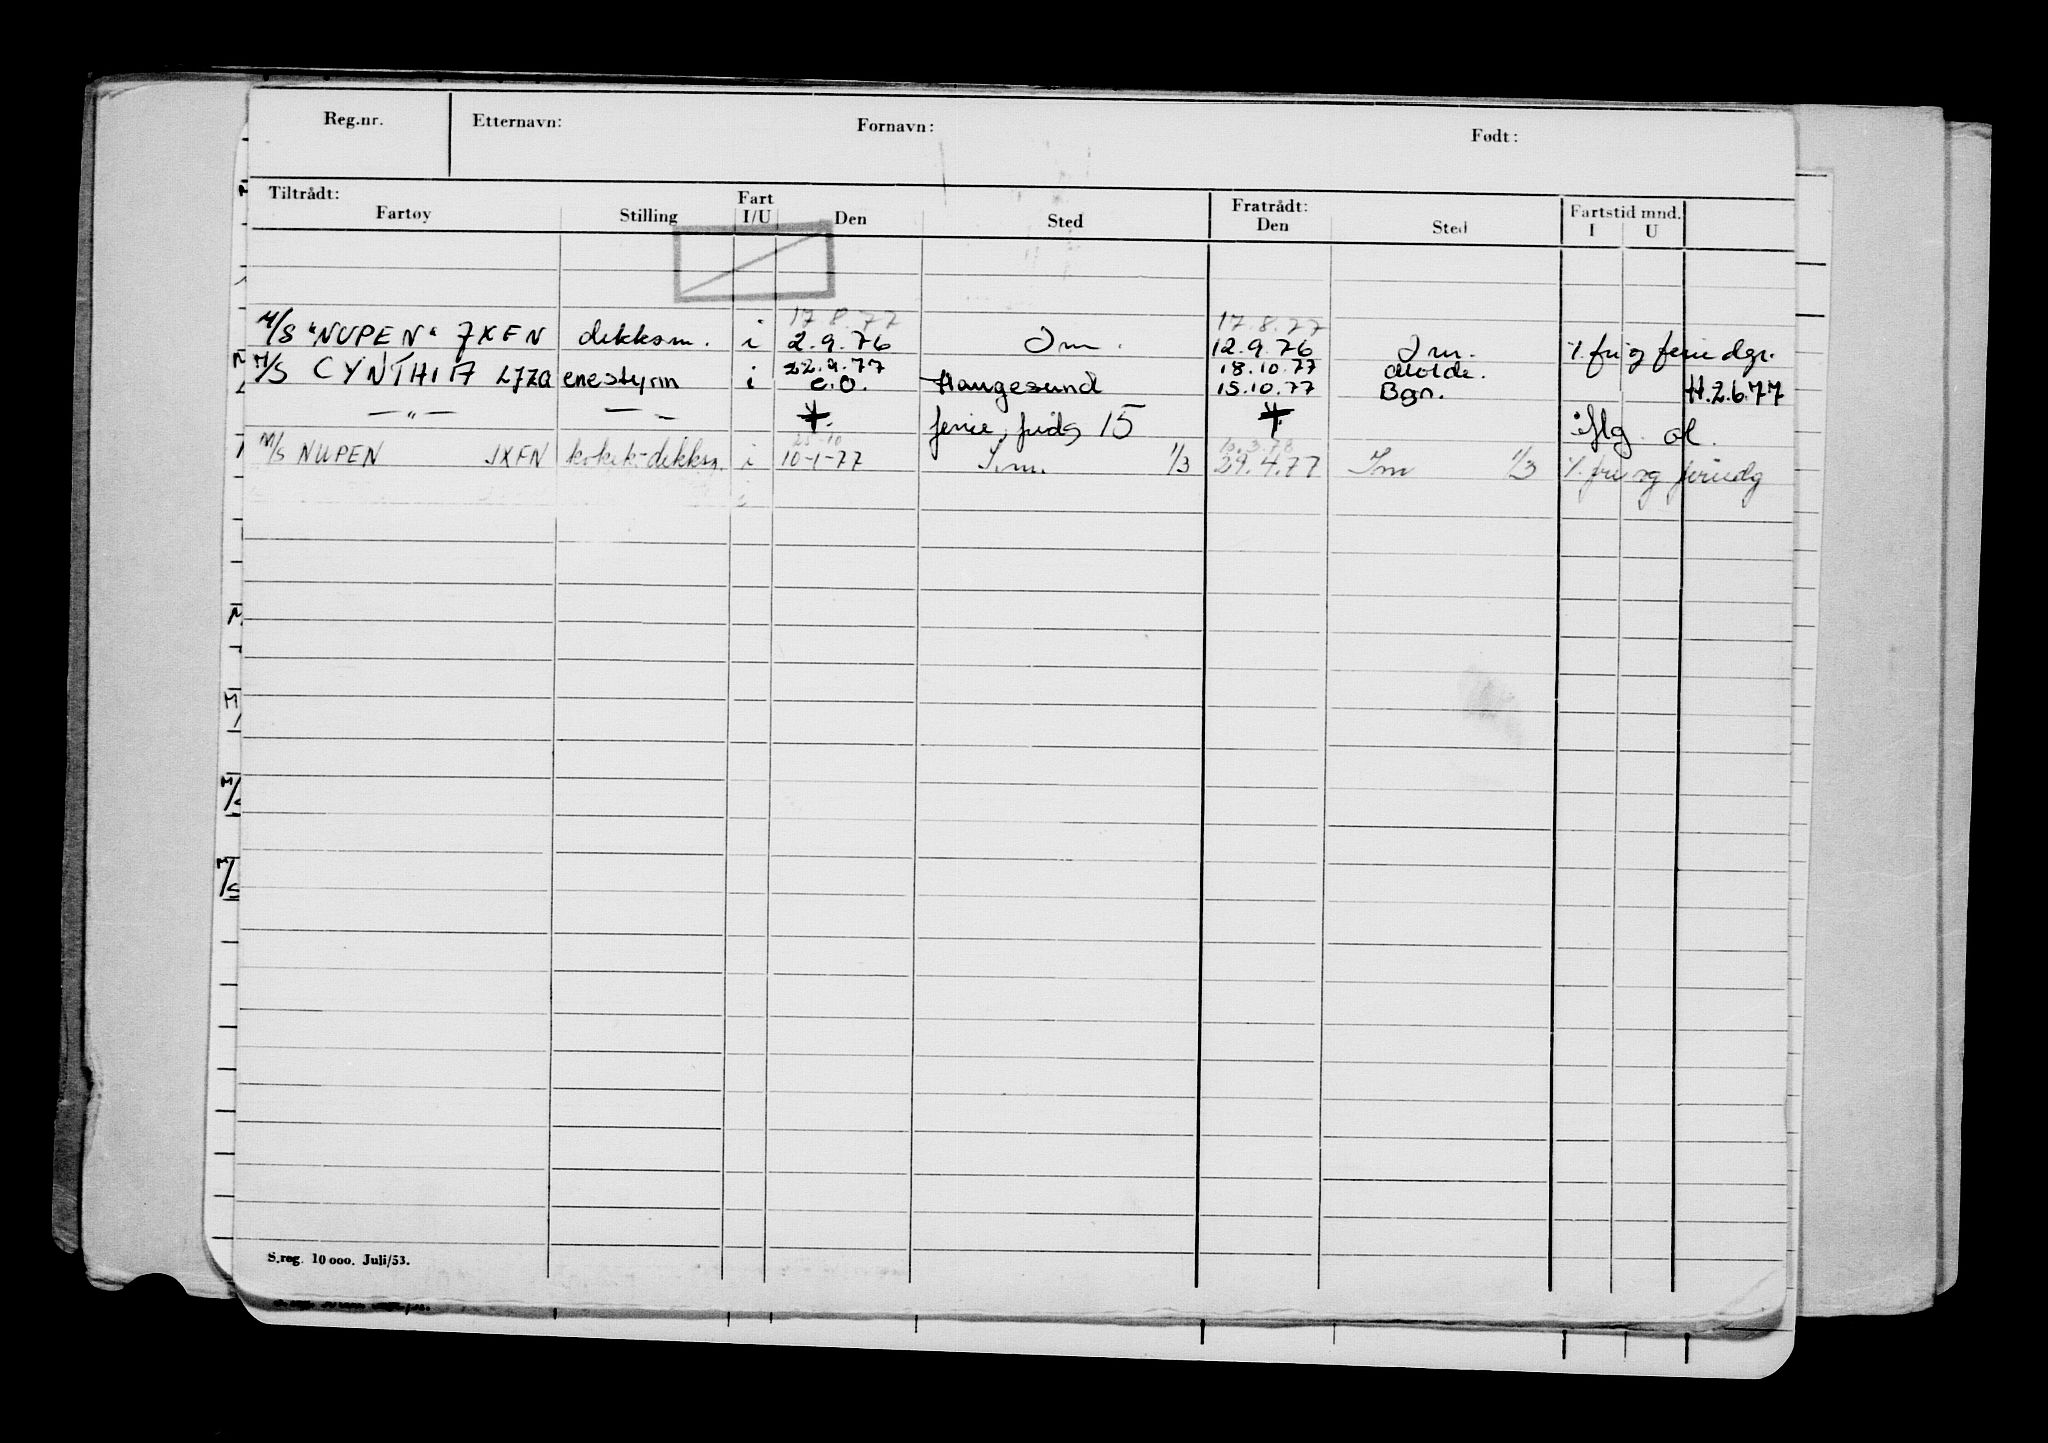 Reg.nr. Etternavn: Fornavn: Født:
Tiltrådt: Fart Fratrådt: Fartstid mnd.
Fartøy Stilling I/U Den Sted Den Sted I U
17.8.77 17.8.77
M/S "NUPEN" JXFN dekksm. i 2.9.76 Im. 12.9.76 Im. % fri og feriedgr.
22.9.77 18.10.77 Molde.
M/S CYNTHIA LJZQ enestyrm i e.o. Haugesund 15.10.77 Bgn. H.2.6.77
—"— — — ferie, frids 15 iflg. ol.
10.3.78
M/S NUPEN JXFN kokk-dekksm. i 10-1-77 Im. 1/3 29.4.77 Im 1/3 % fri og feriedg
i
S.reg. 10 000. Juli/53.